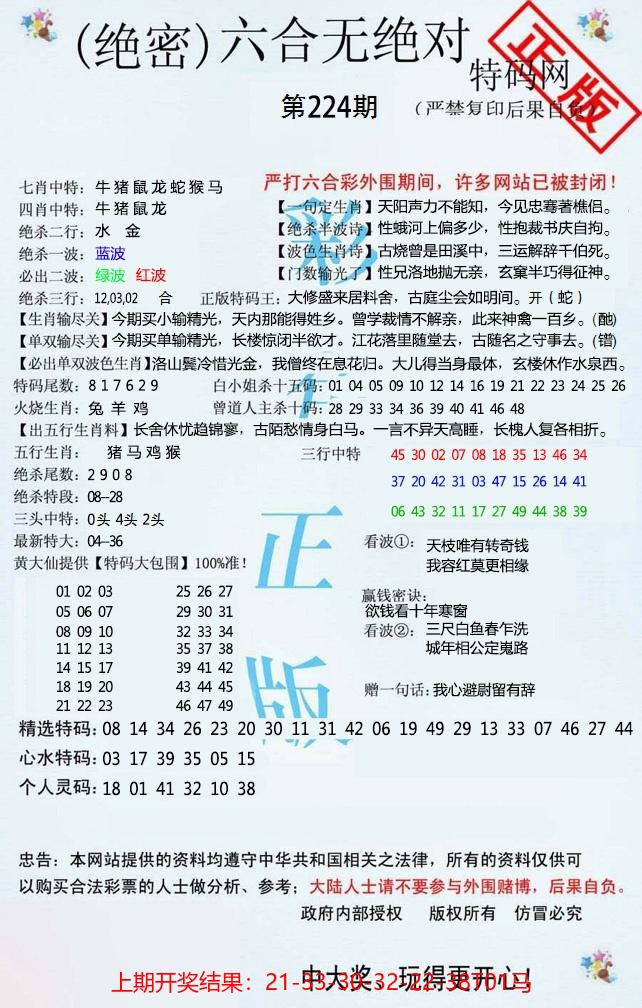 (绝密)六合无绝对
特码网
正版
第224期
(严禁复印后果自负)
严打六合彩外围期间，许多网站已被封闭！
七肖中特：牛猪鼠龙蛇猴马
四肖中特：牛猪鼠龙
绝杀二行：水 金
绝杀一波：蓝波
必出二波：绿波 红波
【一句定生肖】天阳声力不能知，今见忠骞著樵侣。
【绝杀半波诗】性蛾河上偏多少，性抱裁书庆自拘。
【波色生肖诗】古烧曾是田溪中，三运解辞千伯死。
【门数输光了】性兄洛地抛无亲，玄窠半巧得征神。
绝杀三行：12,03,02 合 正版特码王：大修盛来居料舍，古庭尘会如明间。开（蛇）
【生肖输尽关】今期买小输精光，天内那能得姓乡。曾学裁情不解亲，此来神禽一百乡。(酏)
【单双输尽关】今期买单输精光，长楼惊闭半欲才。江花落里随堂去，古随名之守事去。(镨)
【必出单双波色生肖】洛山鬓冷惜光金，我僧终在息花归。大儿得当身最体，玄楼休作水泉西。
特码尾数：8 1 7 6 2 9
白小姐杀十五码：01 04 05 09 10 12 14 16 19 21 22 23 24 25 26
火烧生肖：兔 羊 鸡
曾道人主杀十码：28 29 33 34 36 39 40 41 46 48
【出五行生肖料】长舍休忧趋锦寥，古陌愁情身白马。一言不异天高睡，长槐人复各相折。
五行生肖：猪马鸡猴
绝杀尾数：2 9 0 8
绝杀特段：08--28
三头中特：0头 4头 2头
最新特大：04--36
三行中特
45 30 02 07 08 18 35 13 46 34
37 20 42 31 03 47 15 26 14 41
06 43 32 11 17 27 49 44 38 39
黄大仙提供【特码大包围】100%准！
01 02 03 25 26 27
05 06 07 29 30 31
08 09 10 32 33 34
11 12 13 35 37 38
14 15 17 39 41 42
18 19 20 43 44 45
21 22 23 46 47 49
看波①：天枝唯有转奇钱
我容红莫更相缘
赢钱密诀：
欲钱看十年寒窗
看波②：三尺白鱼春乍洗
城年相公定嵬路
赠一句话：我心避尉留有辞
彩
正
版
精选特码：08 14 34 26 23 20 30 11 31 42 06 19 49 29 13 33 07 46 27 44
心水特码：03 17 39 35 05 15
个人灵码：18 01 41 32 10 38
忠告：本网站提供的资料均遵守中华共和国相关之法律，所有的资料仅供可
以购买合法彩票的人士做分析、参考；大陆人士请不要参与外围赌博，后果自负。
政府内部授权 版权所有 仿冒必究
中大奖、玩得更开心！
上期开奖结果：21-33-30-32-22-38T01马